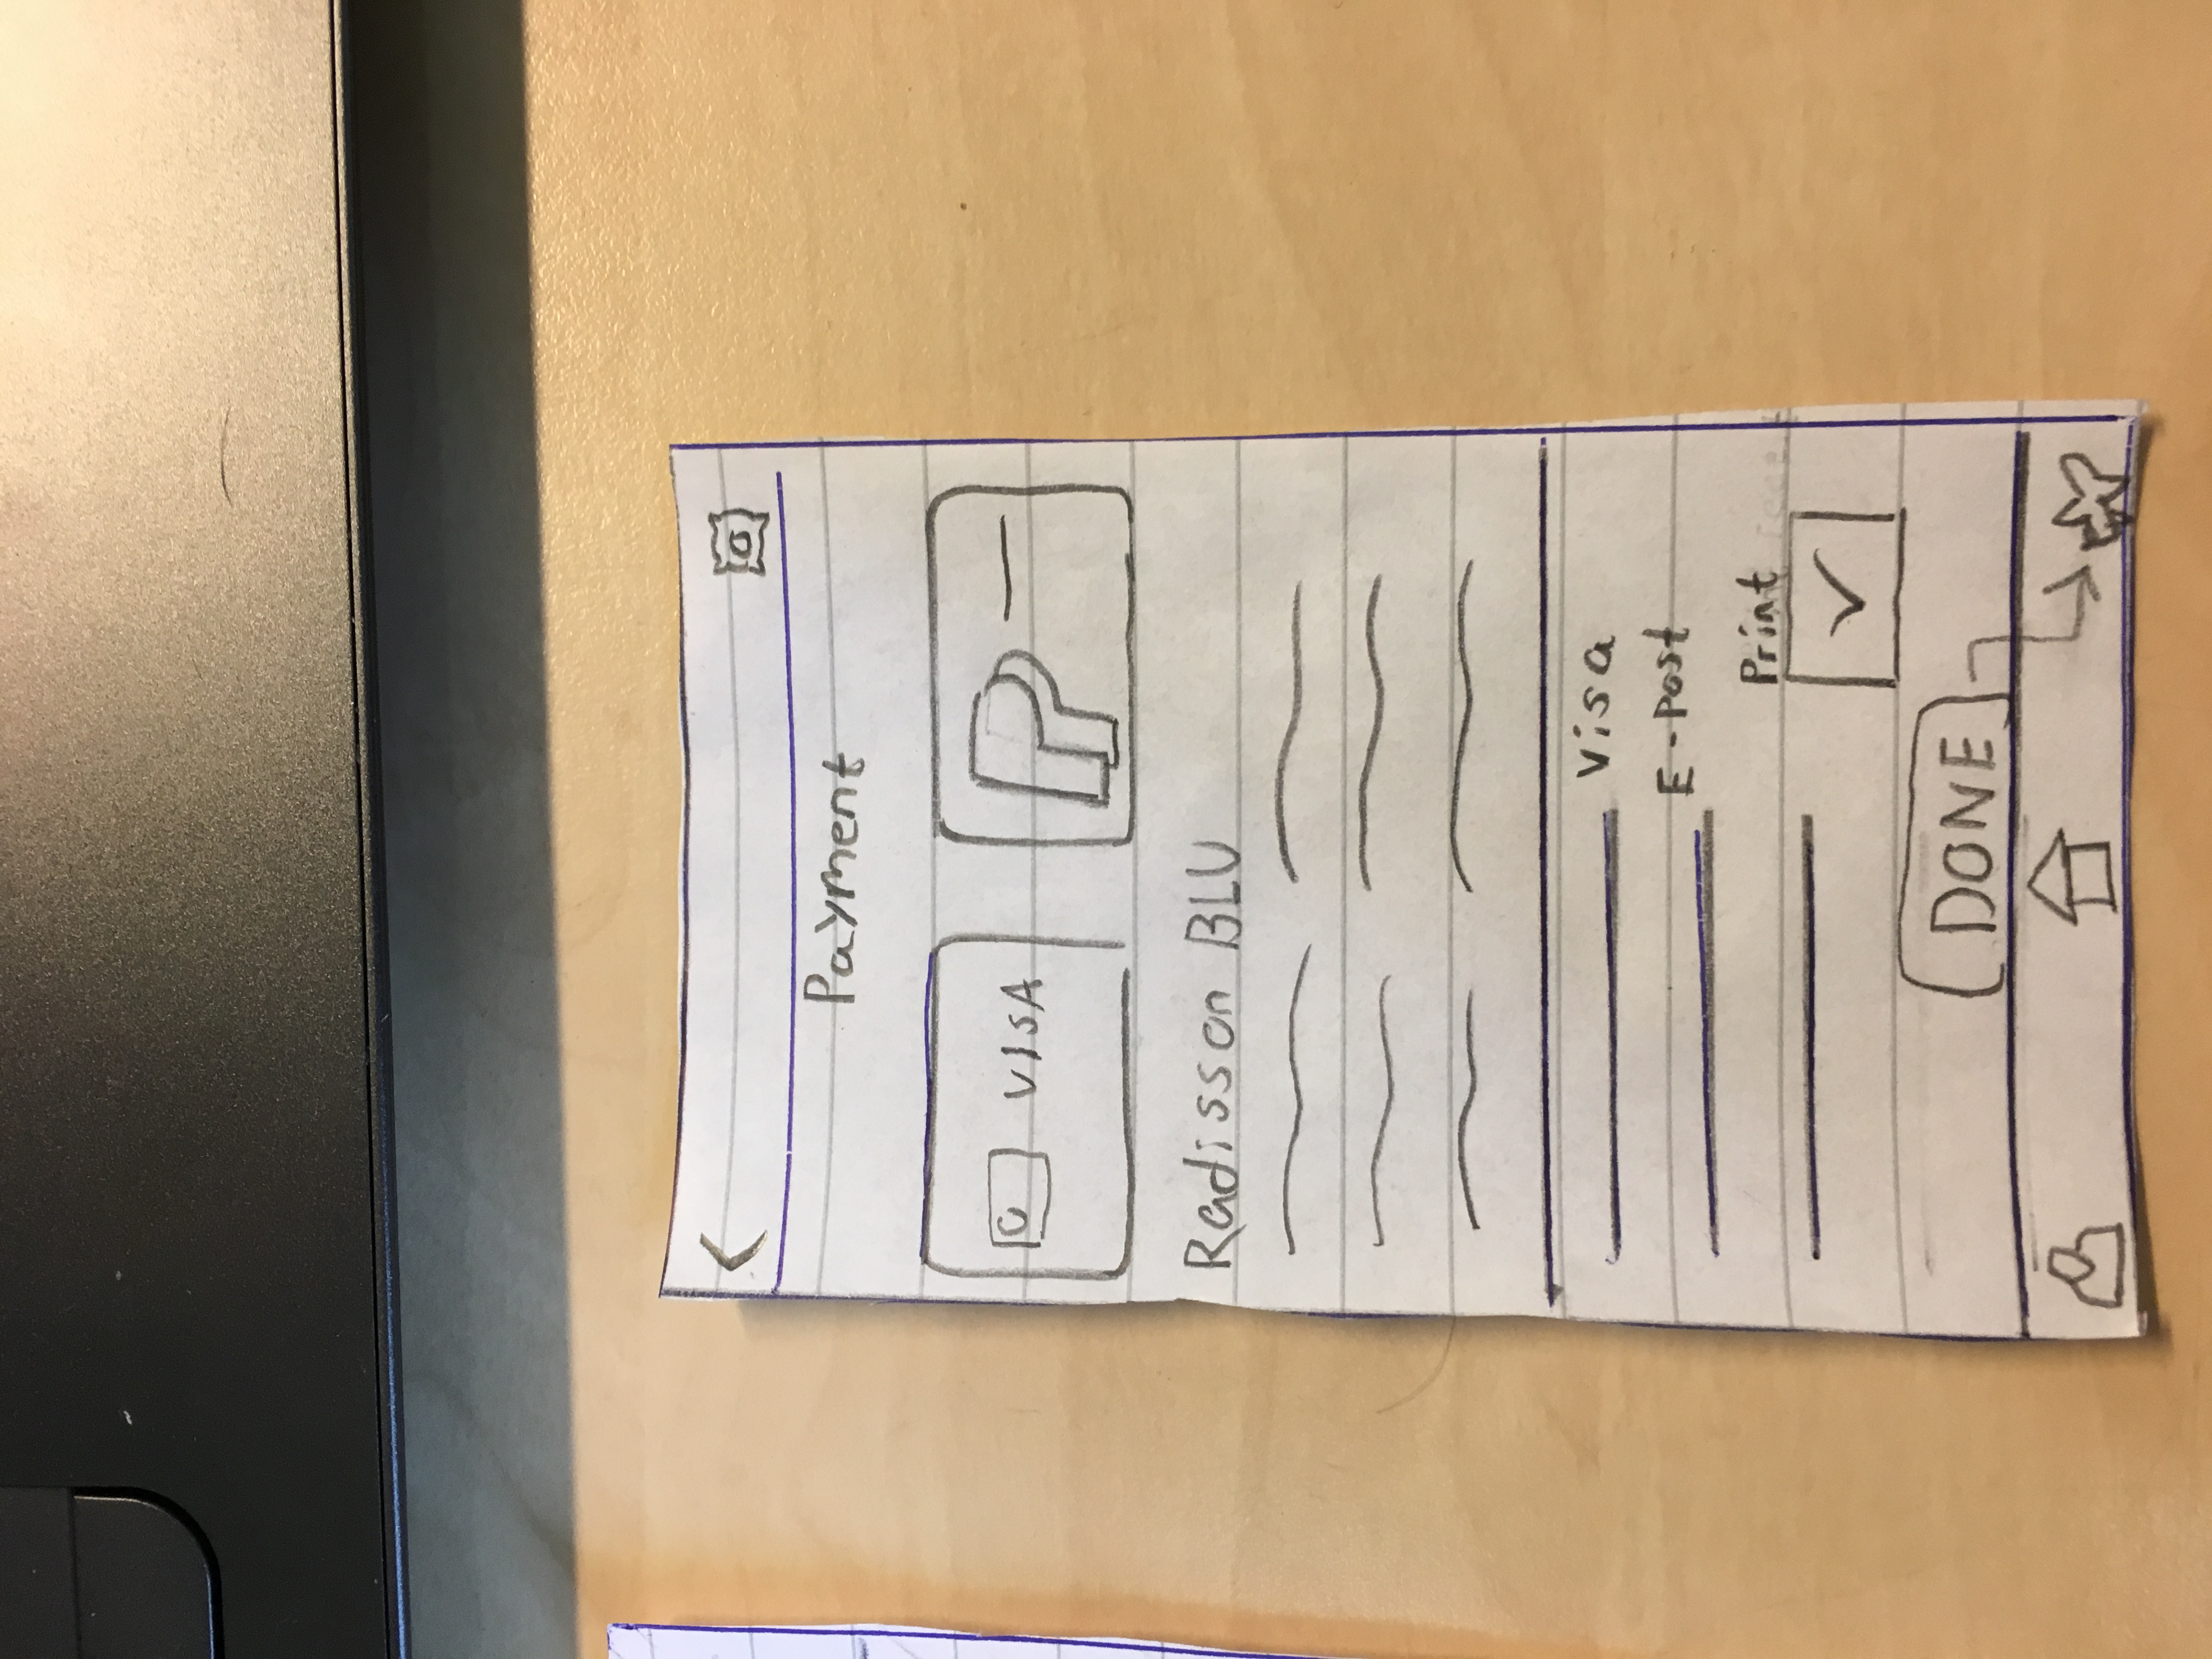 Payment
VISA
Radisson BLU
Visa
E-Post
Print
DONE